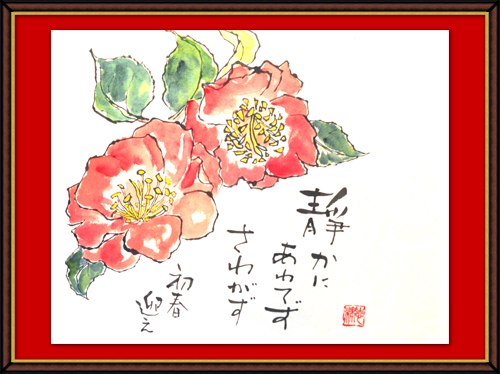 静かに
あわてず
さわがず
初春
迎え